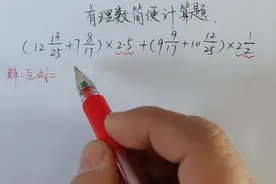 有理数简便计算题.
(12 13/25 + 7 8/17) × 2.5 + (9 9/17 + 10 12/25) × 2 1/2
解:原式=